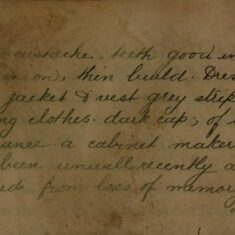 moustache, teeth good in
thin build. Dres
jacket & vest grey strip
ng clothes. dark cap; of
a cabinet maker
been unwell recently a
from loss of memory